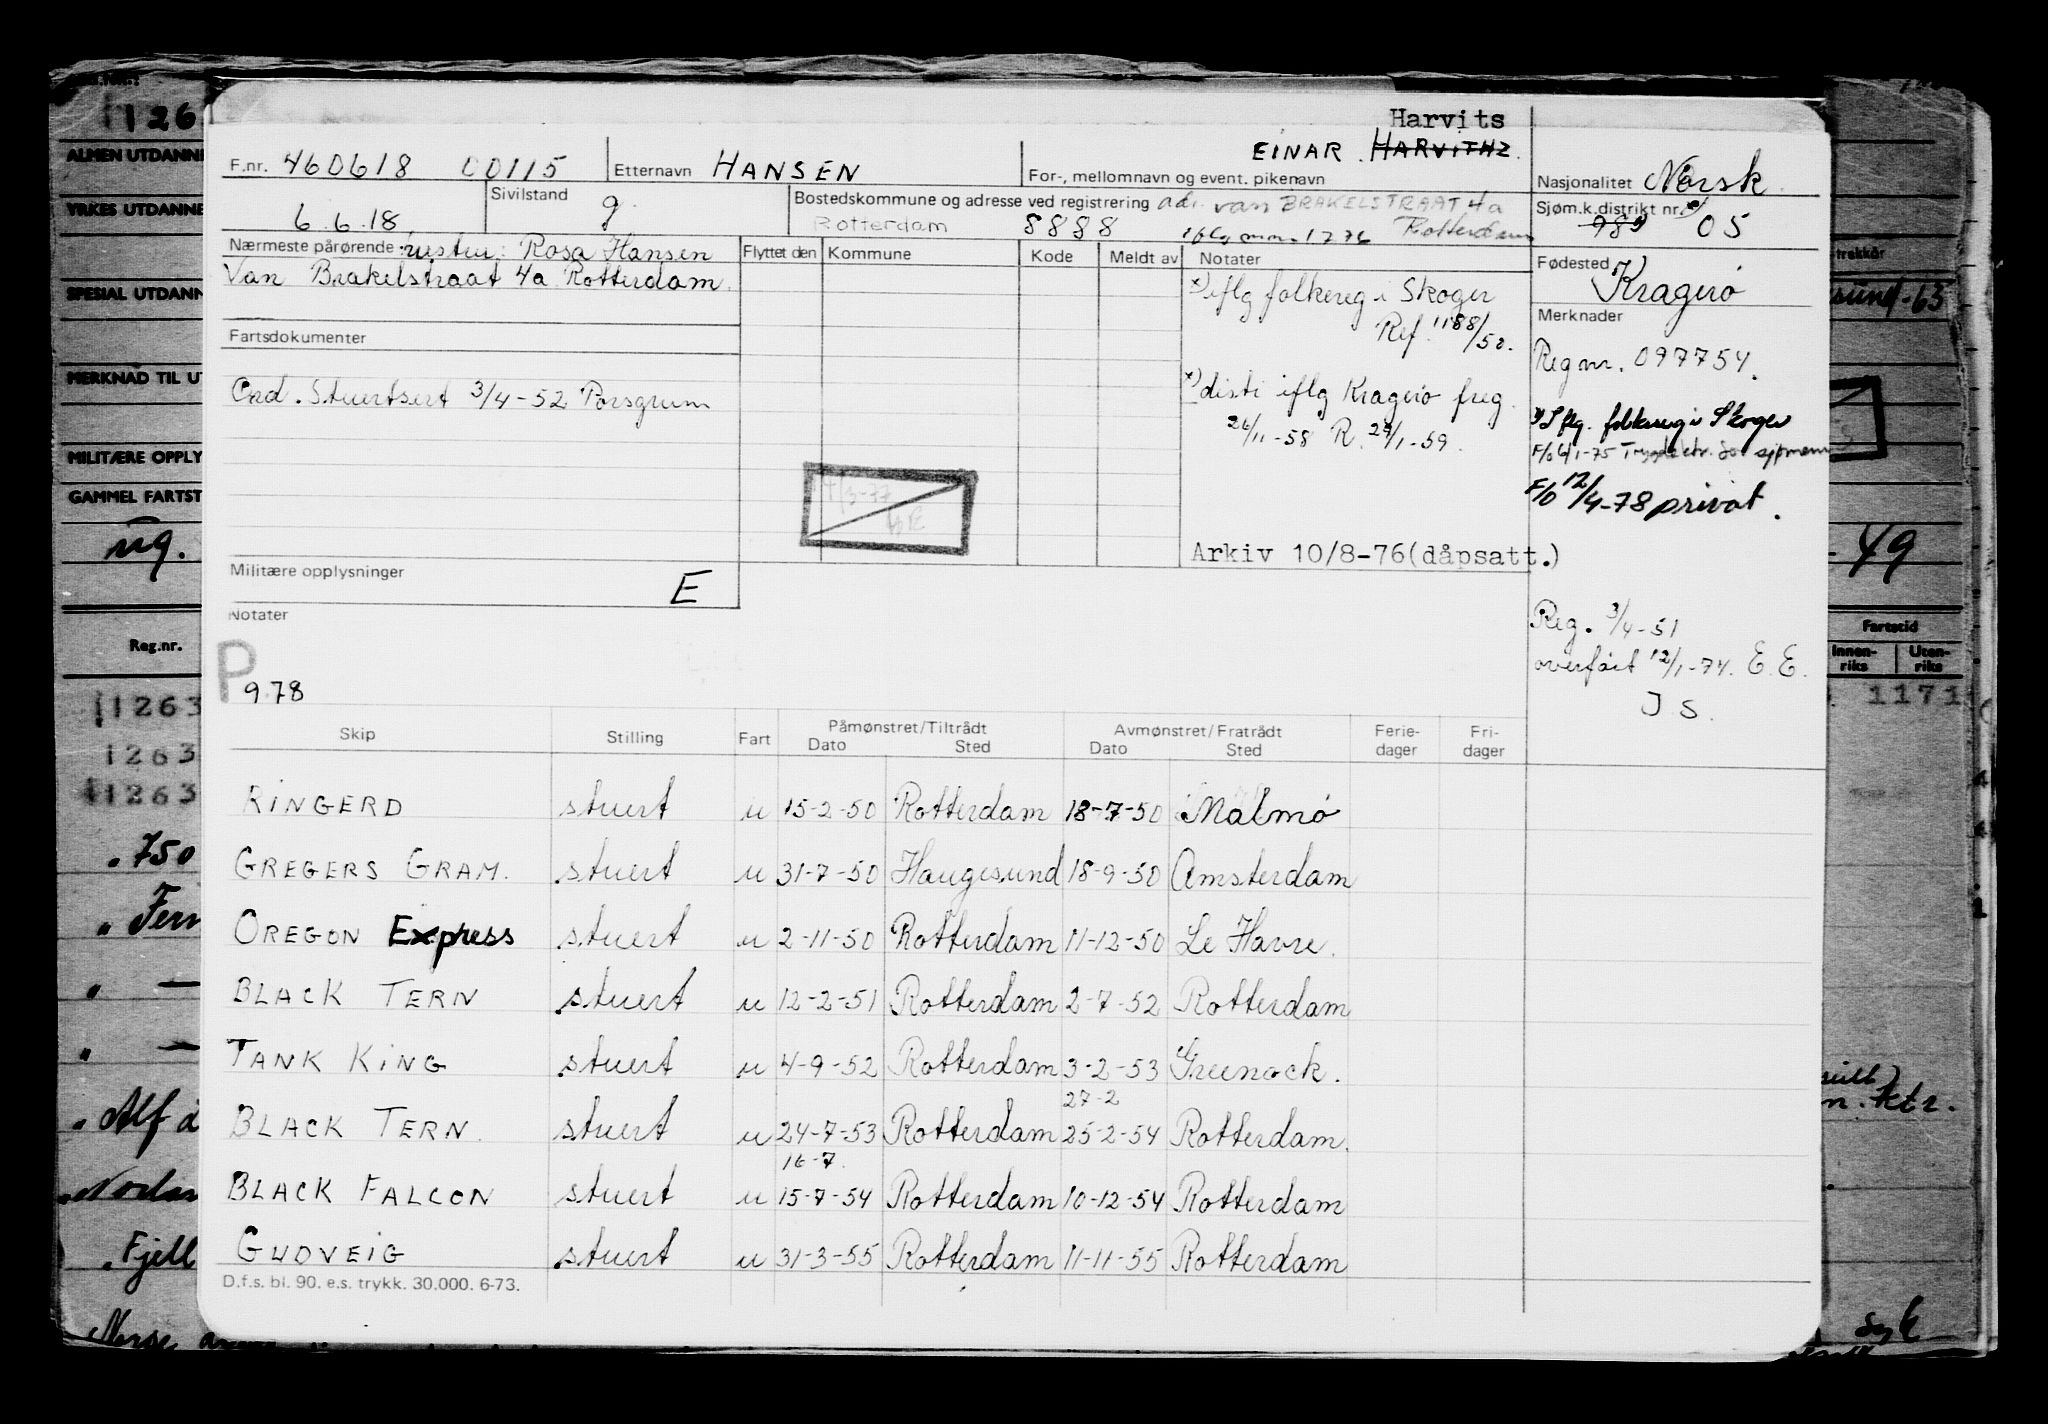 Harvits
F.nr. 460618 00115
Etternavn HANSEN
EINAR HARVITHZ.
For-, mellomnavn og event. pikenavn
Nasjonalitet Norsk.
6.6.18
Sivilstand g
Bostedskommune og adresse ved registrering adr. van BRAKELSTRAAT 4a
Rotterdam 8888 iflg mm. 1276 Rotterdam
Sjøm.k.distrikt nr. x)
989 05
Nærmeste pårørende: hustru: Rosa Hansen
Van Brakelstraat 4a Rotterdam.
Flyttet den Kommune Kode Meldt av Notater
x) iflg folkereg i Skoger
Ref. 1188/52.
x) distr iflg Kragerø freg.
26/11-58 R. 29/1-59.
Arkiv 10/8-76(dåpsatt.)
Fødested Kragerø
Merknader
Reg nr. 097754.
x) Iflg. folkereg i Skoger
F/O 6/1-75 Trygdektr. for sjømenn
F/O 12/4-78 privat.
Reg. 3/4-51
overført 12/1-74. E.E.
J S.
Fartsdokumenter
Ord. Stuertsert 3/4-52 Porsgrunn
Militære opplysninger E
Notater
P
9.78
Skip Stilling Fart Påmønstret/Tiltrådt Dato Sted Avmønstret/Fratrådt Dato Sted Ferie-dager Fri-dager
RINGERD stuert u 15-2-50 Rotterdam 18-7-50 Malmö
GREGERS GRAM. stuert u 31-7-50 Haugesund 18-9-50 Amsterdam
OREGON Express stuert u 2-11-50 Rotterdam 11-12-50 Le Havre.
BLACK TERN stuert u 12-2-51 Rotterdam 2-7-52 Rotterdam
TANK KING stuert u 4-9-52 Rotterdam 3-2-53 Greenock.
27-2
BLACK TERN. stuert u 24-7-53 Rotterdam 25-2-54 Rotterdam.
16-7.
BLACK FALCON stuert u 15-7-54 Rotterdam 10-12-54 Rotterdam
GUDVEIG stuert u 31-3-55 Rotterdam 11-11-55 Rotterdam
D.f.s. bl. 90. e.s. trykk. 30.000. 6-73.
126
ALMEN UTDANNE
YRKES UTDANNE
SPESIAL UTDANN
MERKNAD TIL UT
MILITÆRE OPPLY
GAMMEL FARTST
ug.
Reg.nr.
11263
1263
11263
750
Fern
Alf
Fjell
Norse
-63
-49
Fartstid
Innen-riks Uten-riks
1171
ktr.
syk